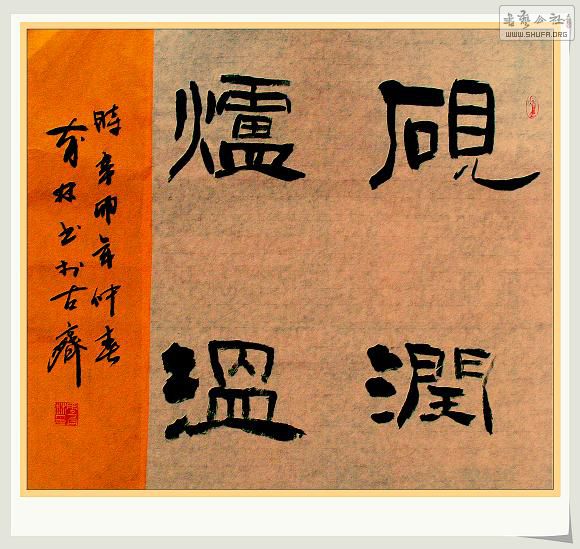 硯潤
爐溫
時辛卯年仲春
育林书於古齋
书藝公社
WWW.SHUFA.ORG